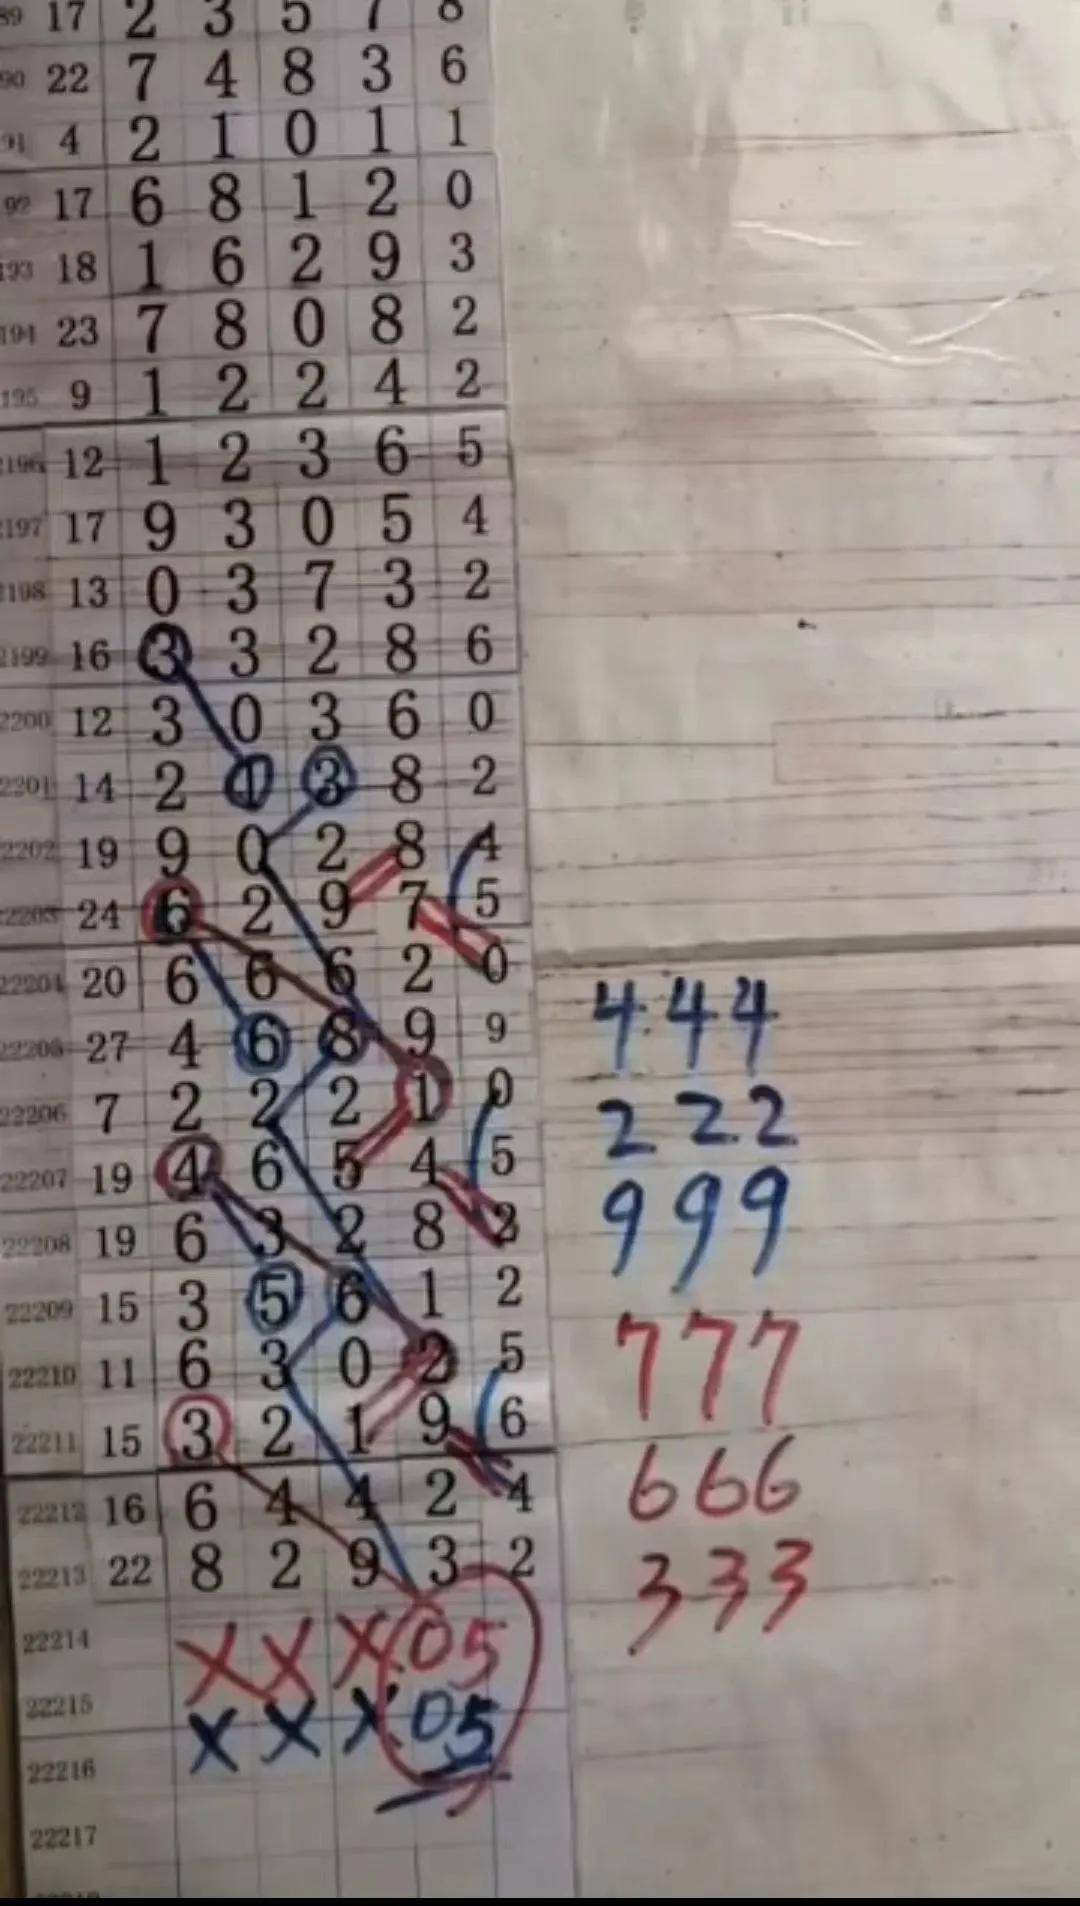 89 17 2 3 5 7 8
90 22 7 4 8 3 6
91 4 2 1 0 1 1
92 17 6 8 1 2 0
193 18 1 6 2 9 3
194 23 7 8 0 8 2
195 9 1 2 2 4 2
2196 12 1 2 3 6 5
2197 17 9 3 0 5 4
2198 13 0 3 7 3 2
2199 16 3 3 2 8 6
2200 12 3 0 3 6 0
2201 14 2 1 3 8 2
2202 19 9 0 2 8 4
2203 24 6 2 9 7 5
22204 20 6 6 6 2 0
444
22205 27 4 6 8 9 9
22206 7 2 2 2 1 0
222
22207 19 4 6 5 4 5
999
22208 19 6 3 2 8 2
22209 15 3 5 6 1 2
777
22210 11 6 3 0 2 5
22211 15 3 2 1 9 6
666
22212 16 6 4 4 2 4
22213 22 8 2 9 3 2
333
22214 X X X 0 5
22215 X X X 0 5
22216
22217